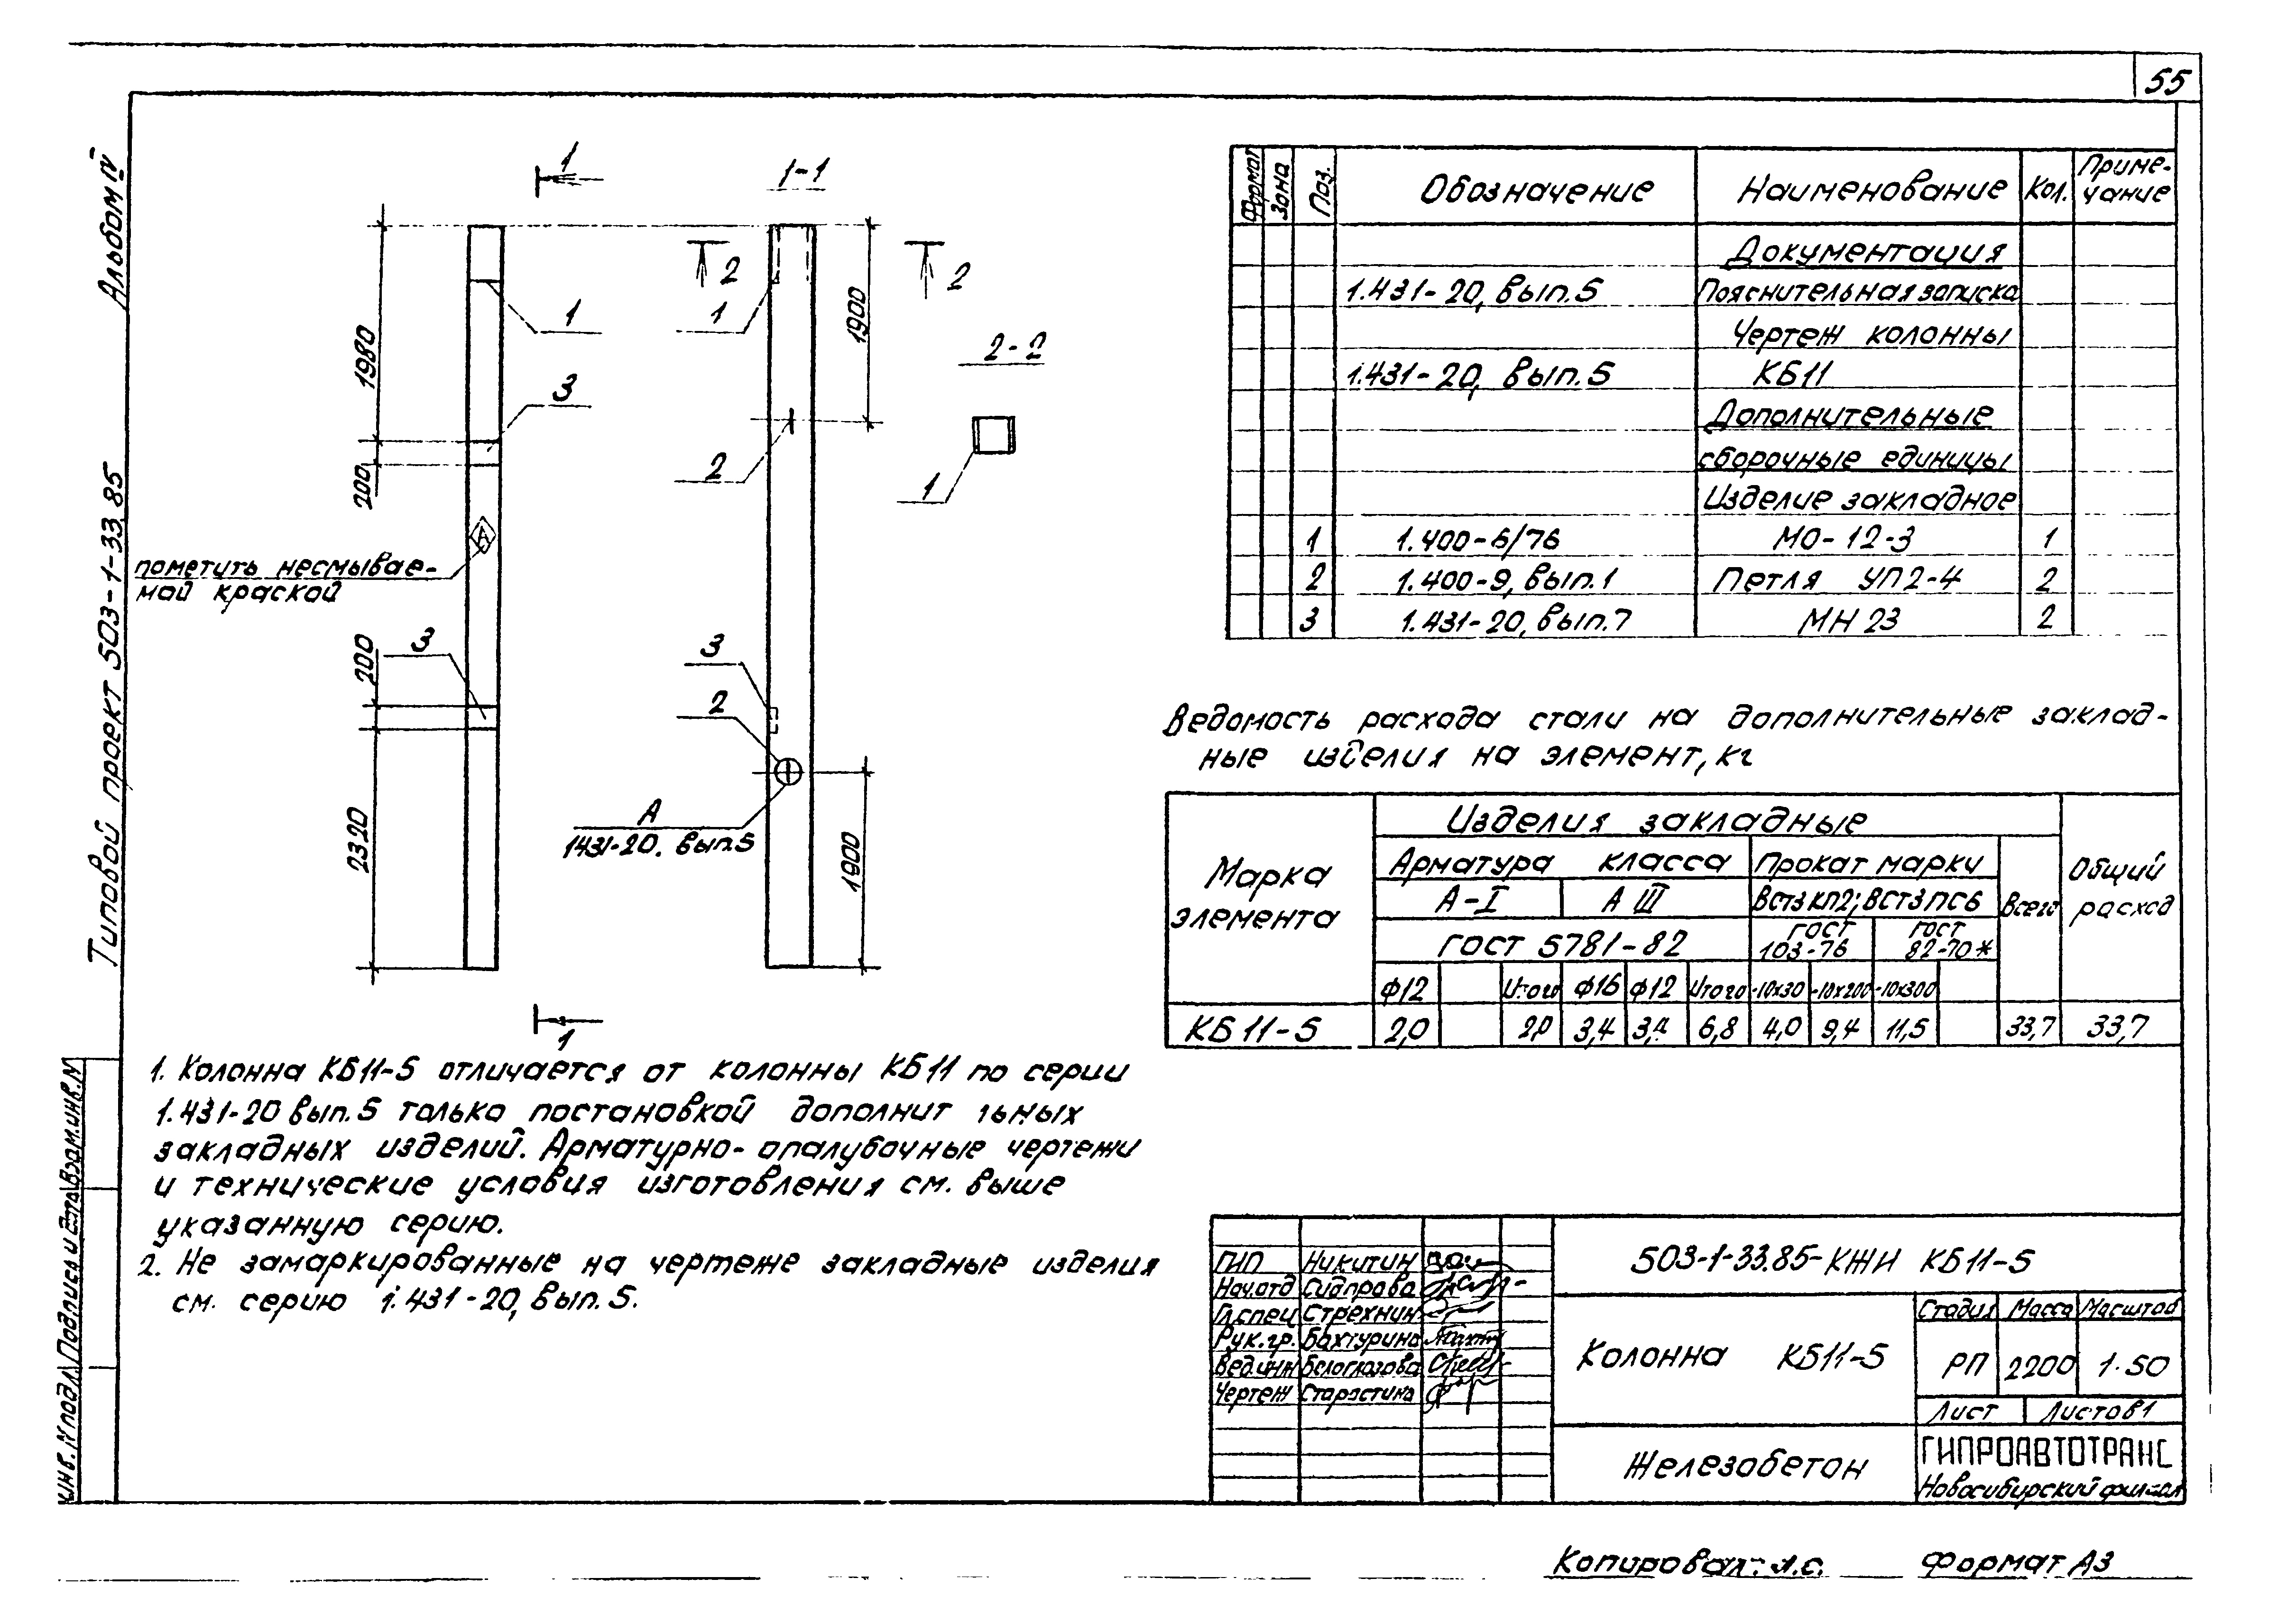 55
Альбом IV
Типовой проект 503-1-33.85
Инв. N подл.
Подпись и дата
Взам.инв.N
1
1-1
2
2
1
1
1980
1900
3
2-2
200
2
1
А
пометить несмывае-
мой краской
3
200
3
2
А
1431-20. вып.5
2320
1900
1
1. Колонна КБ11-5 отличается от колонны КБ11 по серии
1.431-20 вып.5 только постановкой дополнит льных
закладных изделий. Арматурно-опалубочные чертежи
и технические условия изготовления см. выше
указанную серию.
2. Не замаркированные на чертеже закладные изделия
см. серию 1.431-20, вып.5.
Формат Зона Поз. Обозначение Наименование Кол. Приме-
чание
Документация
1.431-20, вып.5 Пояснительная записка
Чертеж колонны
1.431-20, вып.5 КБ11
Дополнительные
сборочные единицы
Изделие закладное
1 1.400-6/76 МО-12-3 1
2 1.400-9, вып.1 Петля УП2-4 2
3 1.431-20, вып.7 МН 23 2
Ведомость расхода стали на дополнительные заклад-
ные изделия на элемент, кг
Марка
элемента
Изделия закладные
Арматура класса Прокат марки
А-I А III ВСт3кп2; ВСт3пс6 Всего
Общий
расход
ГОСТ 5781-82 ГОСТ
103-76 ГОСТ
82-70*
Ф12 Итого Ф16 Ф12 Итого -10х30 -10х200 -10х300
КБ 11-5 2,0 2,0 3,4 3,4 6,8 4,0 9,4 11,5 33,7 33,7
ГИП Никитин
Нач.отд Сидорова
Гл.спец Стрехнин
Рук.гр. Бахтурина
Вед.инж Белоглазова
Чертеж Старостина
503-1-33.85-КЖИ КБ11-5
Колонна КБ11-5
Стадия Масса Масштаб
РП 2200 1:50
Лист Листов 1
Железобетон
ГИПРОАВТОТРАНС
Новосибирский филиал
Копировал: Л.С. Формат А3